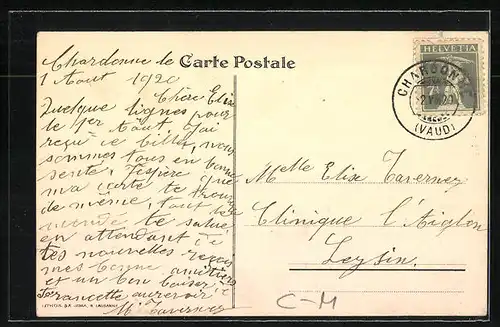 Carte Postale
Chardonne le
1 Aout 1920
Chère Elise
Quelque lignes pour
le 1er Aout. J'ai
reçu ce billet, nous
sommes tous en bonne
sente, J'espère que
ma carte te trouve
de même, tout le
monde te salue,
en attendant de
tes nouvelles
mes bonne amitiers
et un bon baiser
Francette aurevoir
M. Taverney
HELVETIA
7½
CHARDONNE
2 VIII 20
(VAUD)
Melle Elise Taverney
Clinique l'Aiglon
Leysin
C-M
LAUSANNE